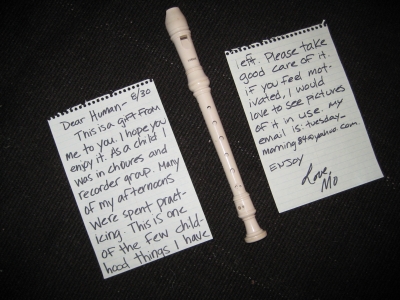 8/30
Dear Human-
This is a gift from
me to you. I hope you
enjoy it. As a child I
was in choures and
recorder group. Many
of my afternoons
were spent pract-
icing. This is one
of the few child-
hood things I have
left. Please take
good care of it.
if you feel mot-
ivated, I would
love to see pictures
of it in use. my
email is: tuesday_
morning84@yahoo.com.
ENJOY
Love,
Mo